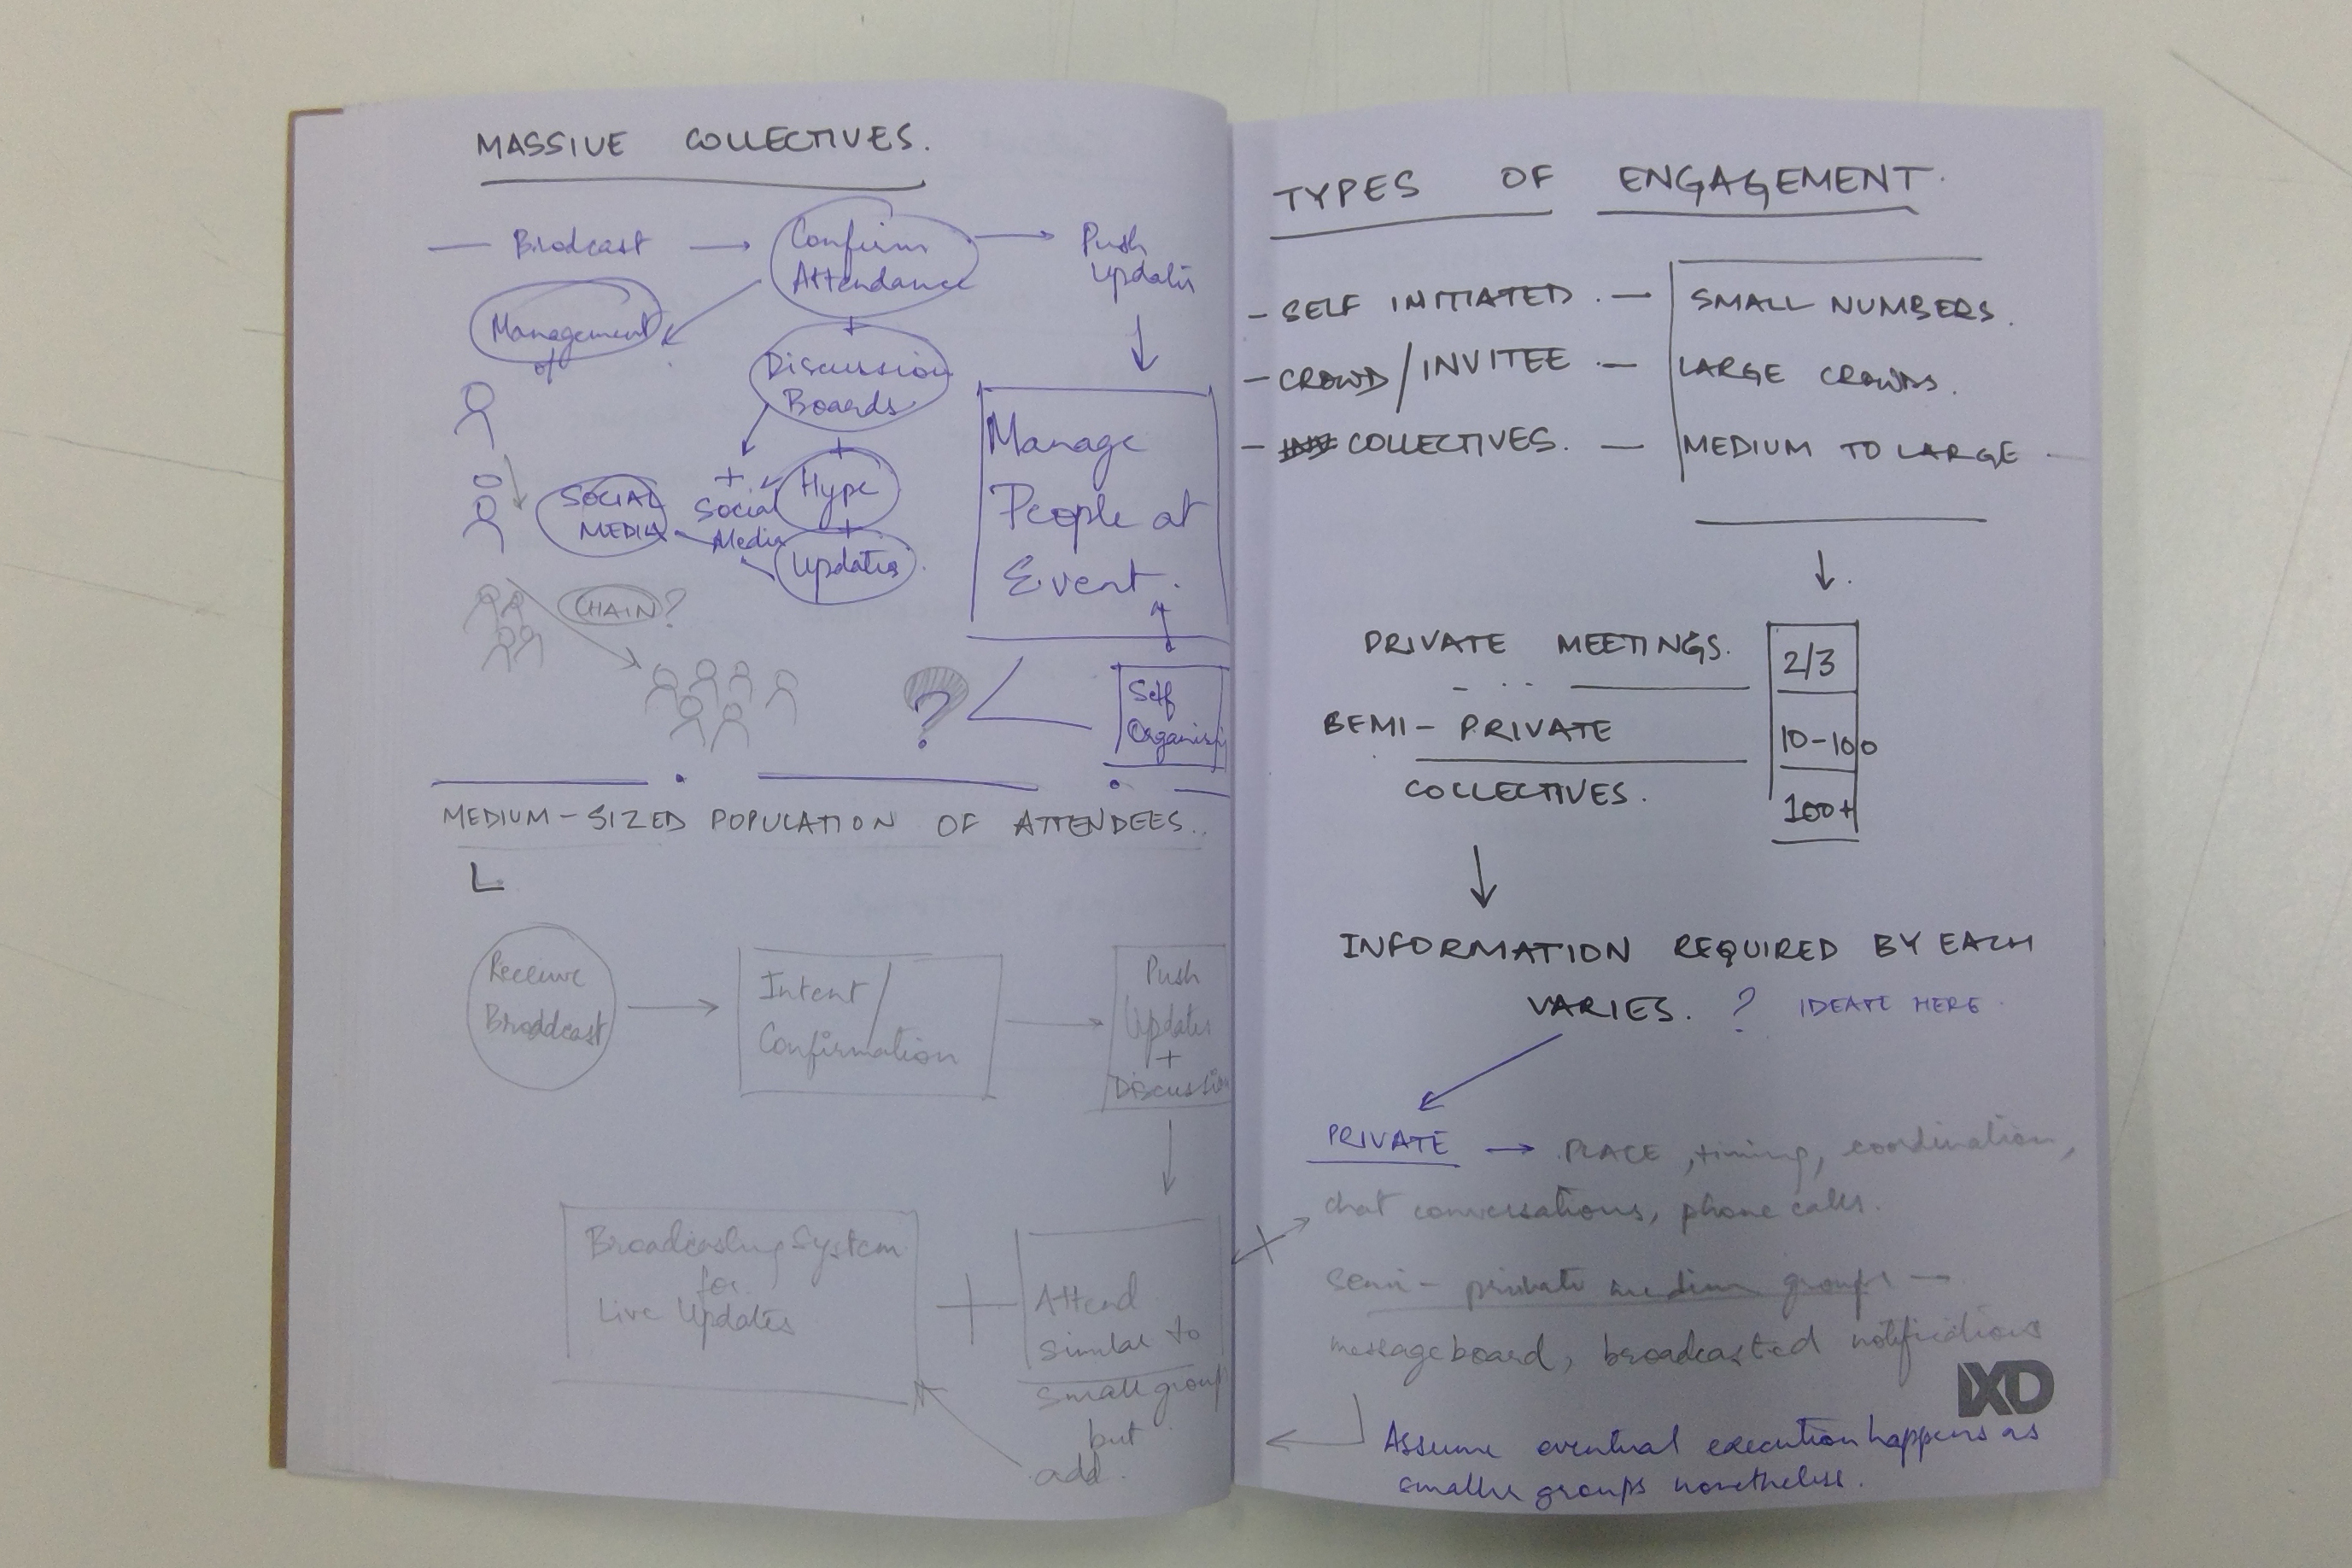 MASSIVE COLLECTIVES.
Brodcast
Confirm
Attendance
Push
Updates
Management
of
Discussion
Boards
SOCIAL
MEDIA
+
Social
Media
+
Hype
+
Updates
CHAIN?
Manage
People at
Event.
?
Self
MEDIUM-SIZED POPULATION OF ATTENDEES.
Receive
Broddcast
Intent/
Confirmation
Push
Updates
+
Discussion
Broadcasting System
for
Live Updates
+
Attend
similar to
small group
but
add.
TYPES OF ENGAGEMENT.
- SELF INITIATED. — SMALL NUMBERS.
- CROWD/INVITEE — LARGE CROWDS.
- COLLECTIVES. — MEDIUM TO LARGE
PRIVATE MEETINGS. 2/3
SEMI-PRIVATE 10-100
COLLECTIVES. 100+
INFORMATION REQUIRED BY EACH
VARIES. ? IDEATE HERE
PRIVATE → PLACE, timing, coordination,
chat conversations, phone calls.
Semi-private medium groups —
messageboard, broadcasted notifications
IXD
Assume eventual execution happens as
smaller groups nonetheless.